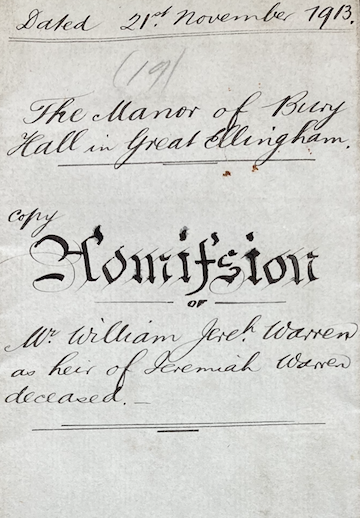 Dated 21st November 1913.
(19)
The Manor of Bury
Hall in Great Ellingham.
copy
Admiſsion
OF
Mr. William Jereh. Warren
as heir of Jeremiah Warren
deceased. —